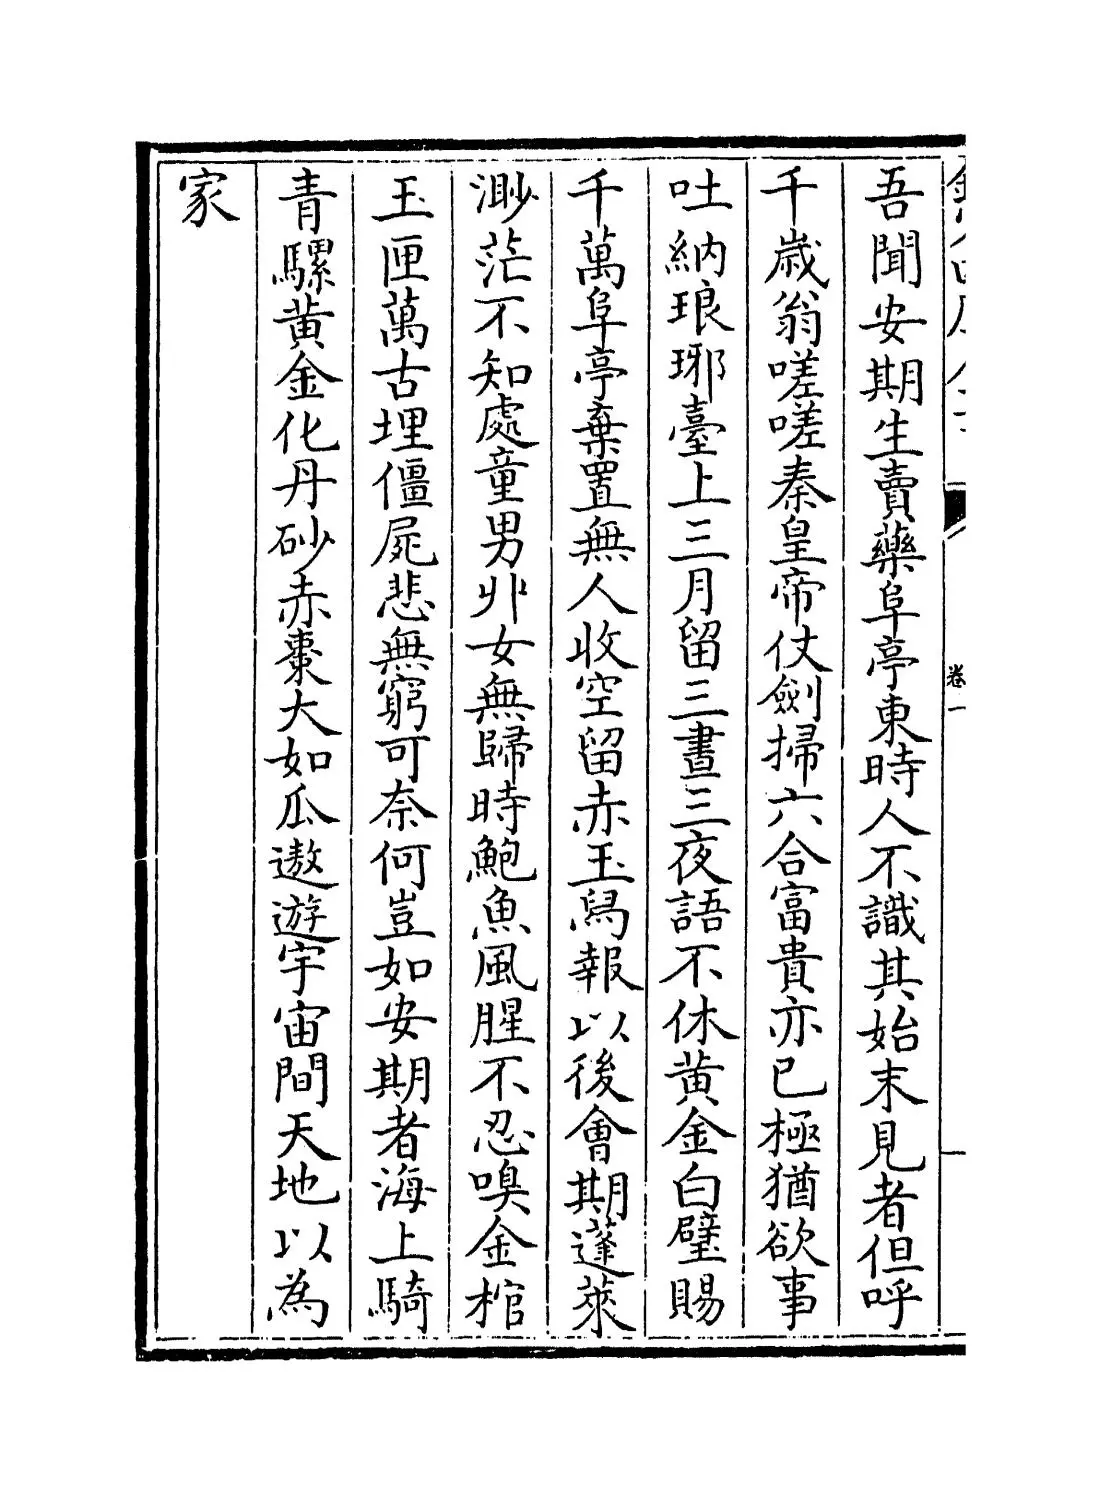 吾聞安期生賣藥阜亭東時人不識其始末見者但呼
千歲翁嗟嗟秦皇帝仗劍掃六合富貴亦已極猶欲事
吐納琅琊臺上三月留三晝三夜語不休黃金白璧賜
千萬阜亭棄置無人收空留赤玉舄報以後會期蓬萊
渺茫不知處童男丱女無歸時鮑魚風腥不忍嗅金棺
玉匣萬古埋僵屍悲無窮可奈何豈如安期者海上騎
青騾黃金化丹砂赤棗大如瓜遨遊宇宙間天地以為
家
卷一